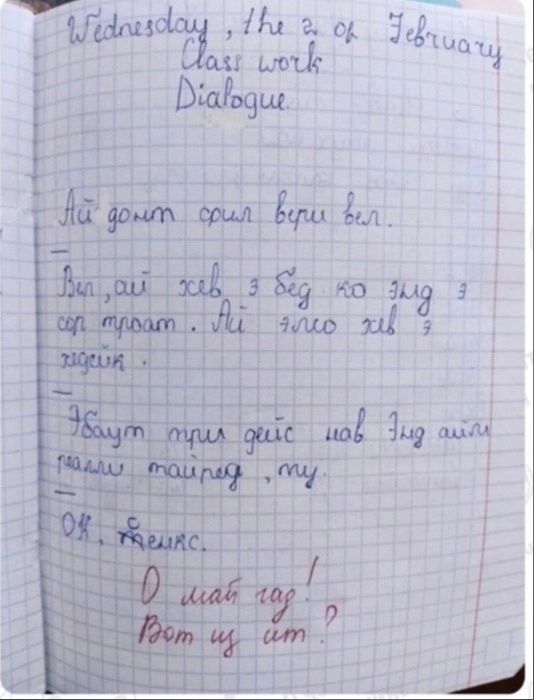 Wednesday, the 2 of February
Class work
Dialogue.
Ай донт фил вери вел.
—
Вел, ай хев э бед ко энд э
сор троат. Ай элсо хев э
хедейк.
—
Эбаут три дейс нав Энд айм
реалли тайред, ту.
—
ОК, сенкс.
О май гад!
Вот из ит?